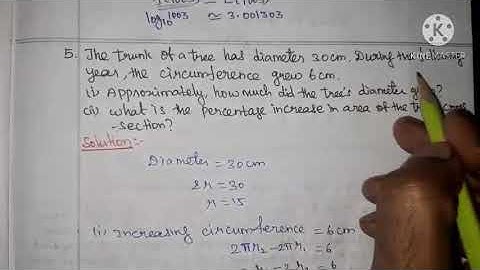 log₁₀ 1003 ≃ 3.001303
KINEMASTER
5. The trunk of a tree has diameter 30cm. During the following
year, the circumference grew 6cm.
(i) Approximately, how much did the tree's diameter grow?
(ii) what is the percentage increase in area of the tree's cross
-section?
Solution:-
Diameter = 30cm
2r = 30
r = 15
(i) Increasing circumference = 6cm
2πr₂ - 2πr₁ = 6